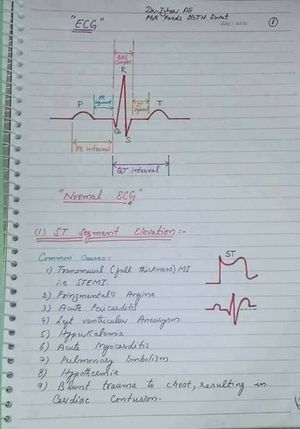 "ECG"
Dr. Ishaq Ali
day / date:
①
QRS Complex
R
PR Segment
ST Segment
P
T
Q
S
PR interval
QT interval
"Normal ECG"
(1) ST Segment Elevation:-
Common Causes:
ST
1) Transmural (full thickness) MI
i.e STEMI.
2) Prinzmental's Angina
3) Acute Pericarditis
4) Left ventricular Aneurysm
5) Hyperkalemia
6) Acute Myocarditis
7) Pulmonary Embolism
8) Hypothermia
9) Blunt trauma to chest, resulting in
Cardiac Contusion.